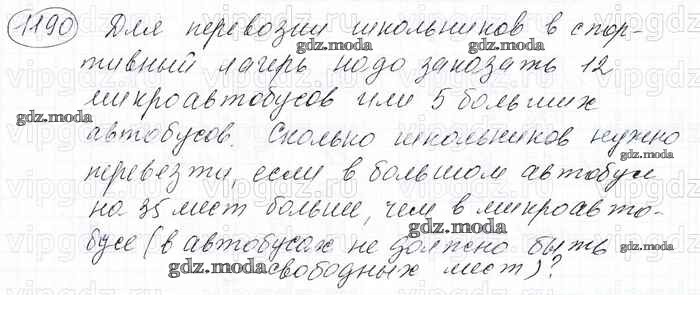 1190 Для перевозки школьников в спор-
тивный лагерь надо заказать 12
микроавтобусов или 5 больших
автобусов. Сколько школьников нужно
перевезти, если в большом автобусе
на 35 мест больше, чем в микроавто-
бусе (в автобусах не должно быть
свободных мест)?
gdz.moda
gdz.moda
gdz.moda
gdz.moda
gdz.moda
gdz.moda
gdz.moda
gdz.moda
gdz.moda